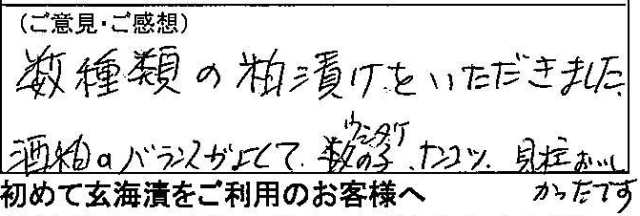 (ご意見・ご感想)
数種類の粕漬けをいただきました
ウミタケ
酒粕のバランスがよくて、数の子、ナンコツ、貝柱おいし
かったです
初めて玄海漬をご利用のお客様へ